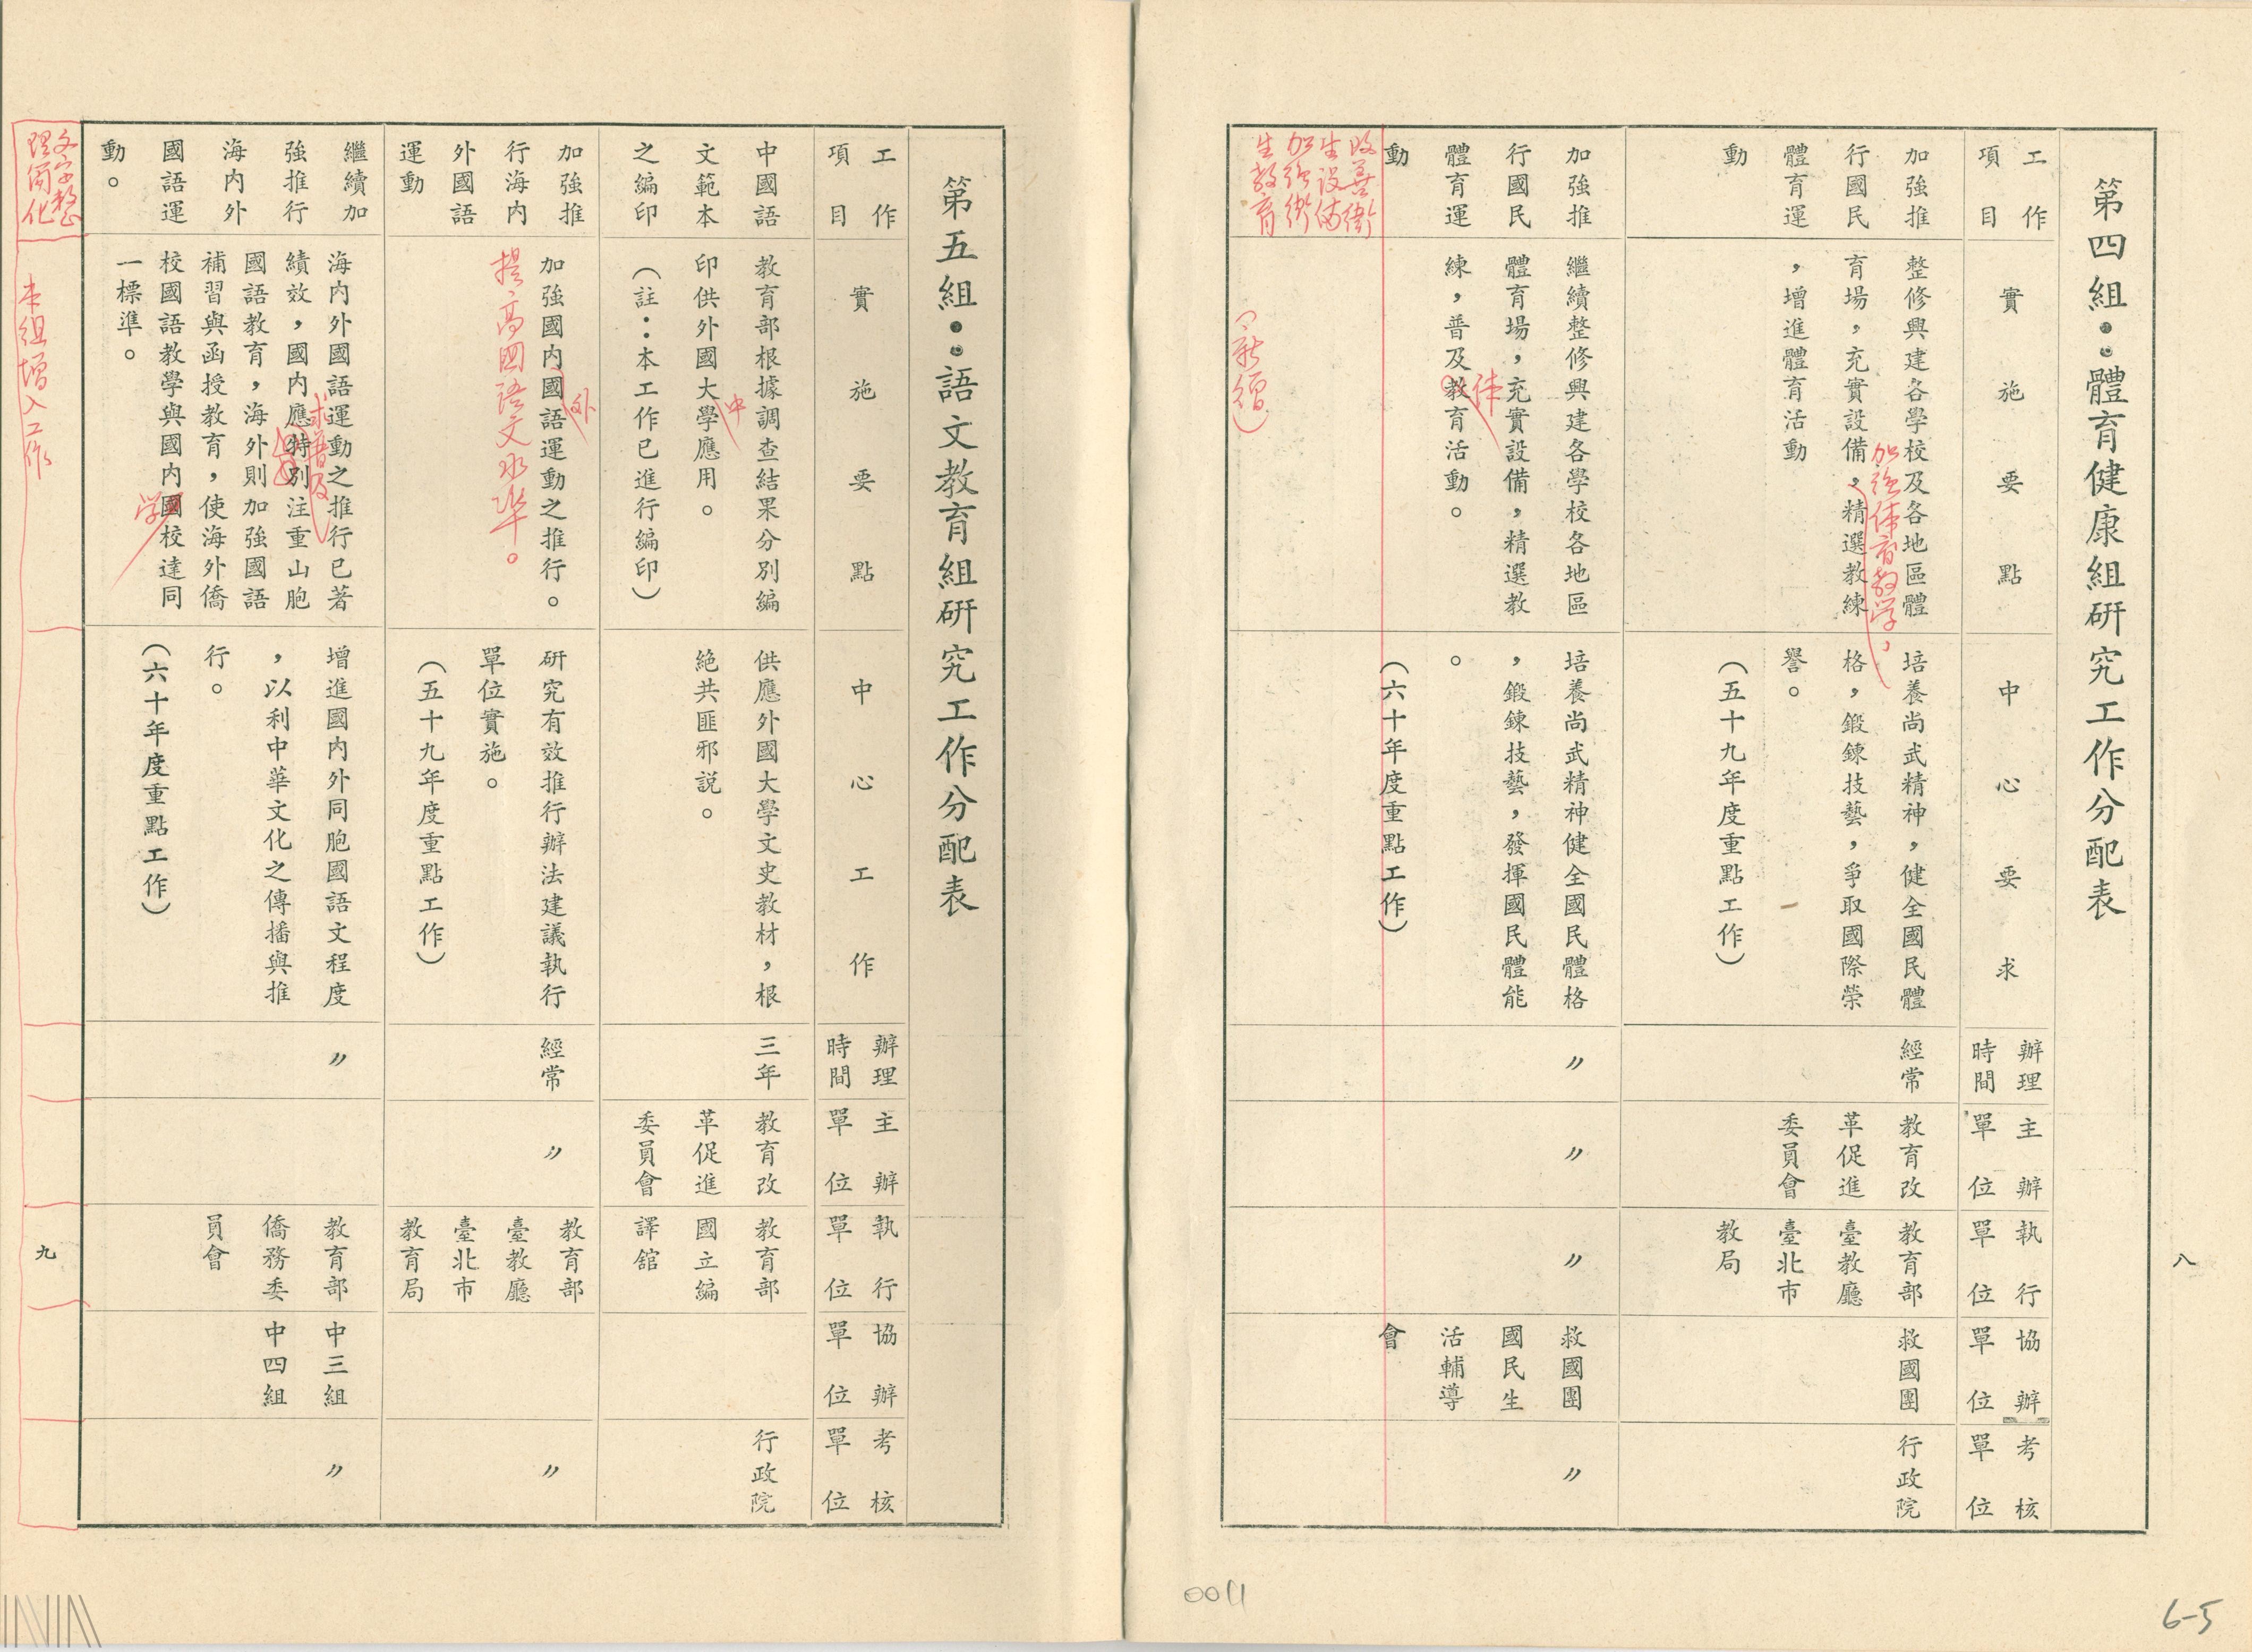 第四組：體育健康組研究工作分配表
工作
項目
實施要點
中心要求
辦理
時間
主辦
單位
執行
單位
協辦
單位
考核
單位
加強推
行國民
體育運
動
整修興建各學校及各地區體
育場，充實設備，精選教練
，增進體育活動
加強体育教学，
培養尚武精神，健全國民體
格，鍛鍊技藝，爭取國際榮
譽。
（五十九年度重點工作）
經常
教育改
革促進
委員會
教育部
臺教廳
臺北市
教局
救國團
行政院
加強推
行國民
體育運
動
繼續整修興建各學校各地區
體育場，充實設備，精選教
練，普及教育活動。
体
培養尚武精神健全國民體格
，鍛鍊技藝，發揮國民體能
。
（六十年度重點工作）
〃
〃
〃
救國團
國民生
活輔導
會
〃
改善衛
生設備
加強衛
生教育
（新增）
八
0011
6-5
第五組：語文教育組研究工作分配表
工作
項目
實施要點
中心工作
辦理
時間
主辦
單位
執行
單位
協辦
單位
考核
單位
中國語
文範本
之編印
教育部根據調查結果分別編
印供外國大學應用。
中
（註：本工作已進行編印）
供應外國大學文史教材，根
絕共匪邪説。
三年
教育改
革促進
委員會
教育部
國立編
譯舘
行政院
加強推
行海內
外國語
運動
加強國內國語運動之推行。
外
提高國語文水準。
研究有效推行辦法建議執行
單位實施。
（五十九年度重點工作）
經常
〃
教育部
臺教廳
臺北市
教育局
〃
繼續加
強推行
海內外
國語運
動。
海內外國語運動之推行已著
績效，國內應特別注重山胞
求普及
國語教育，海外則加強國語
補習與函授教育，使海外僑
校國語教學與國內國校達同
学
一標準。
增進國內外同胞國語文程度
，以利中華文化之傳播與推
行。
（六十年度重點工作）
〃
教育部
僑務委
員會
中三組
中四組
〃
文字整
理簡化
本組增入工作
九